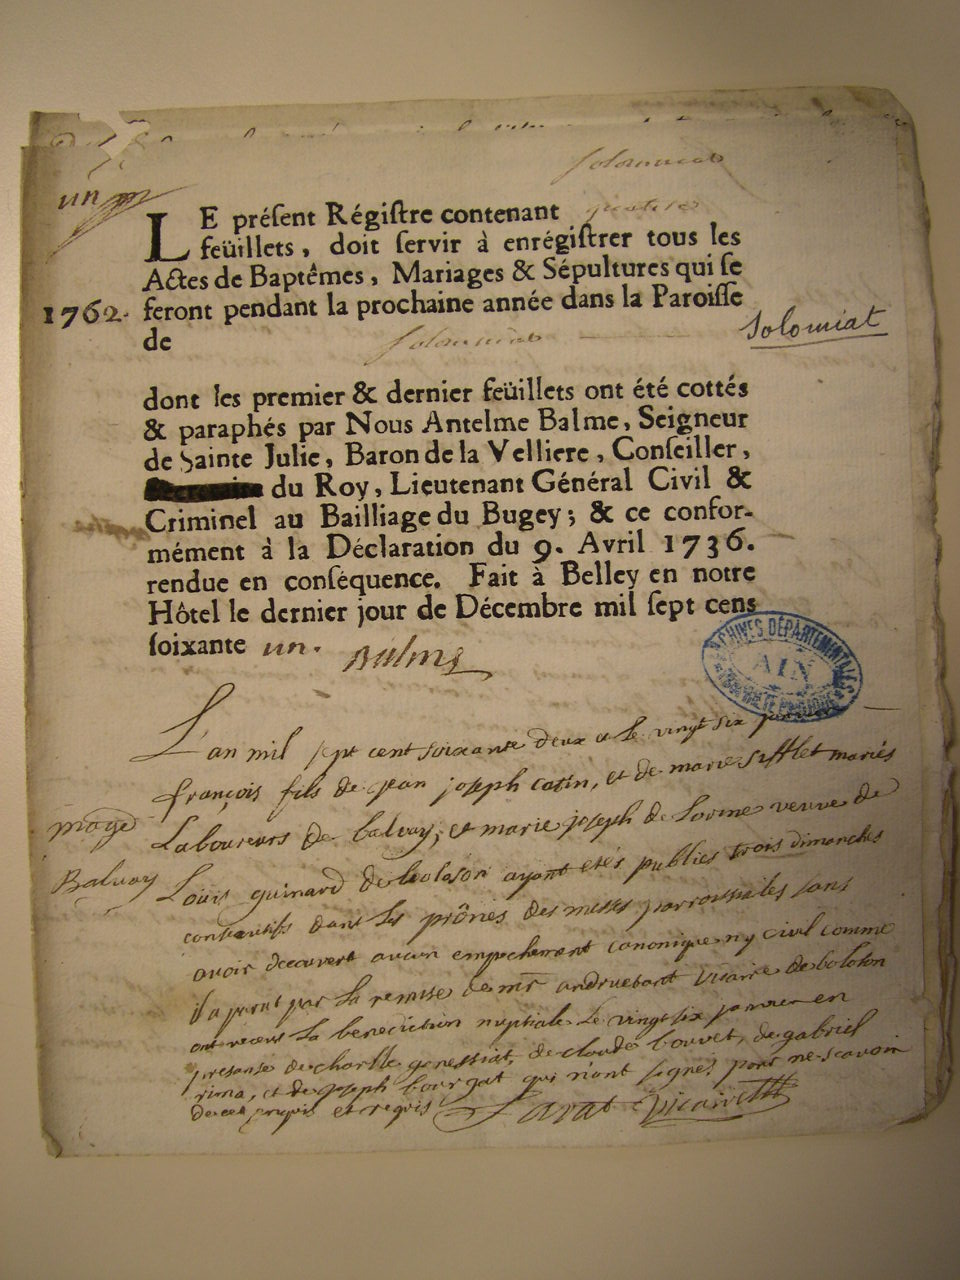 Solomiat
un
LE préſent Régiſtre contenant quatre
feüillets, doit ſervir à enrégiſtrer tous les
Actes de Baptêmes, Mariages & Sépultures qui ſe
1762. feront pendant la prochaine année dans la Paroiſſe
de Solomiat Solomiat
dont les premier & dernier feüillets ont été cottés
& paraphés par Nous Antelme Balme, Seigneur
de Sainte Julie, Baron de la Velliere, Conſeiller,
du Roy, Lieutenant Général Civil &
Criminel au Bailliage du Bugey; & ce confor-
mément à la Déclaration du 9. Avril 1736.
rendue en conſéquence. Fait à Belley en notre
Hôtel le dernier jour de Décembre mil ſept cens
ſoixante un. Balme
ARCHIVES DÉPARTEMENTALES
AIN
L'an mil sept cent soixante deux et le vingt six janvier
françois fils de jean joseph catin, et de marie sifflet mariés
Laboureurs de balvay, et marie joseph de Lorme veuve de
mage
Balvay
Louis guinard de boloson ayant etés publies trois dimanches
consecutifs dans les prônes des messes parroissiales sans
avoir decouvert aucun empechement canonique ny civil comme
il a parut par la remise de mr andruetant vicaire de boloson
ont receus la benediction nuptiale le vingt six janvier en
presense de charlle genessiat, de claude bouvet, de gabriel
rima, et de joseph bourgat qui n'ont signés pour ne scavoir
de ce enquis et requis Savat vicaire